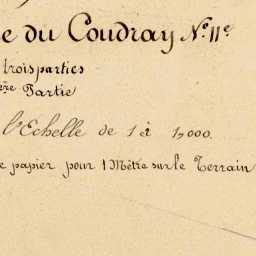 e du Coudray N.º 11e
trois parties
ère Partie
l'Echelle de 1 à 1,000.
e papier pour 1 Mètre sur le Terrain